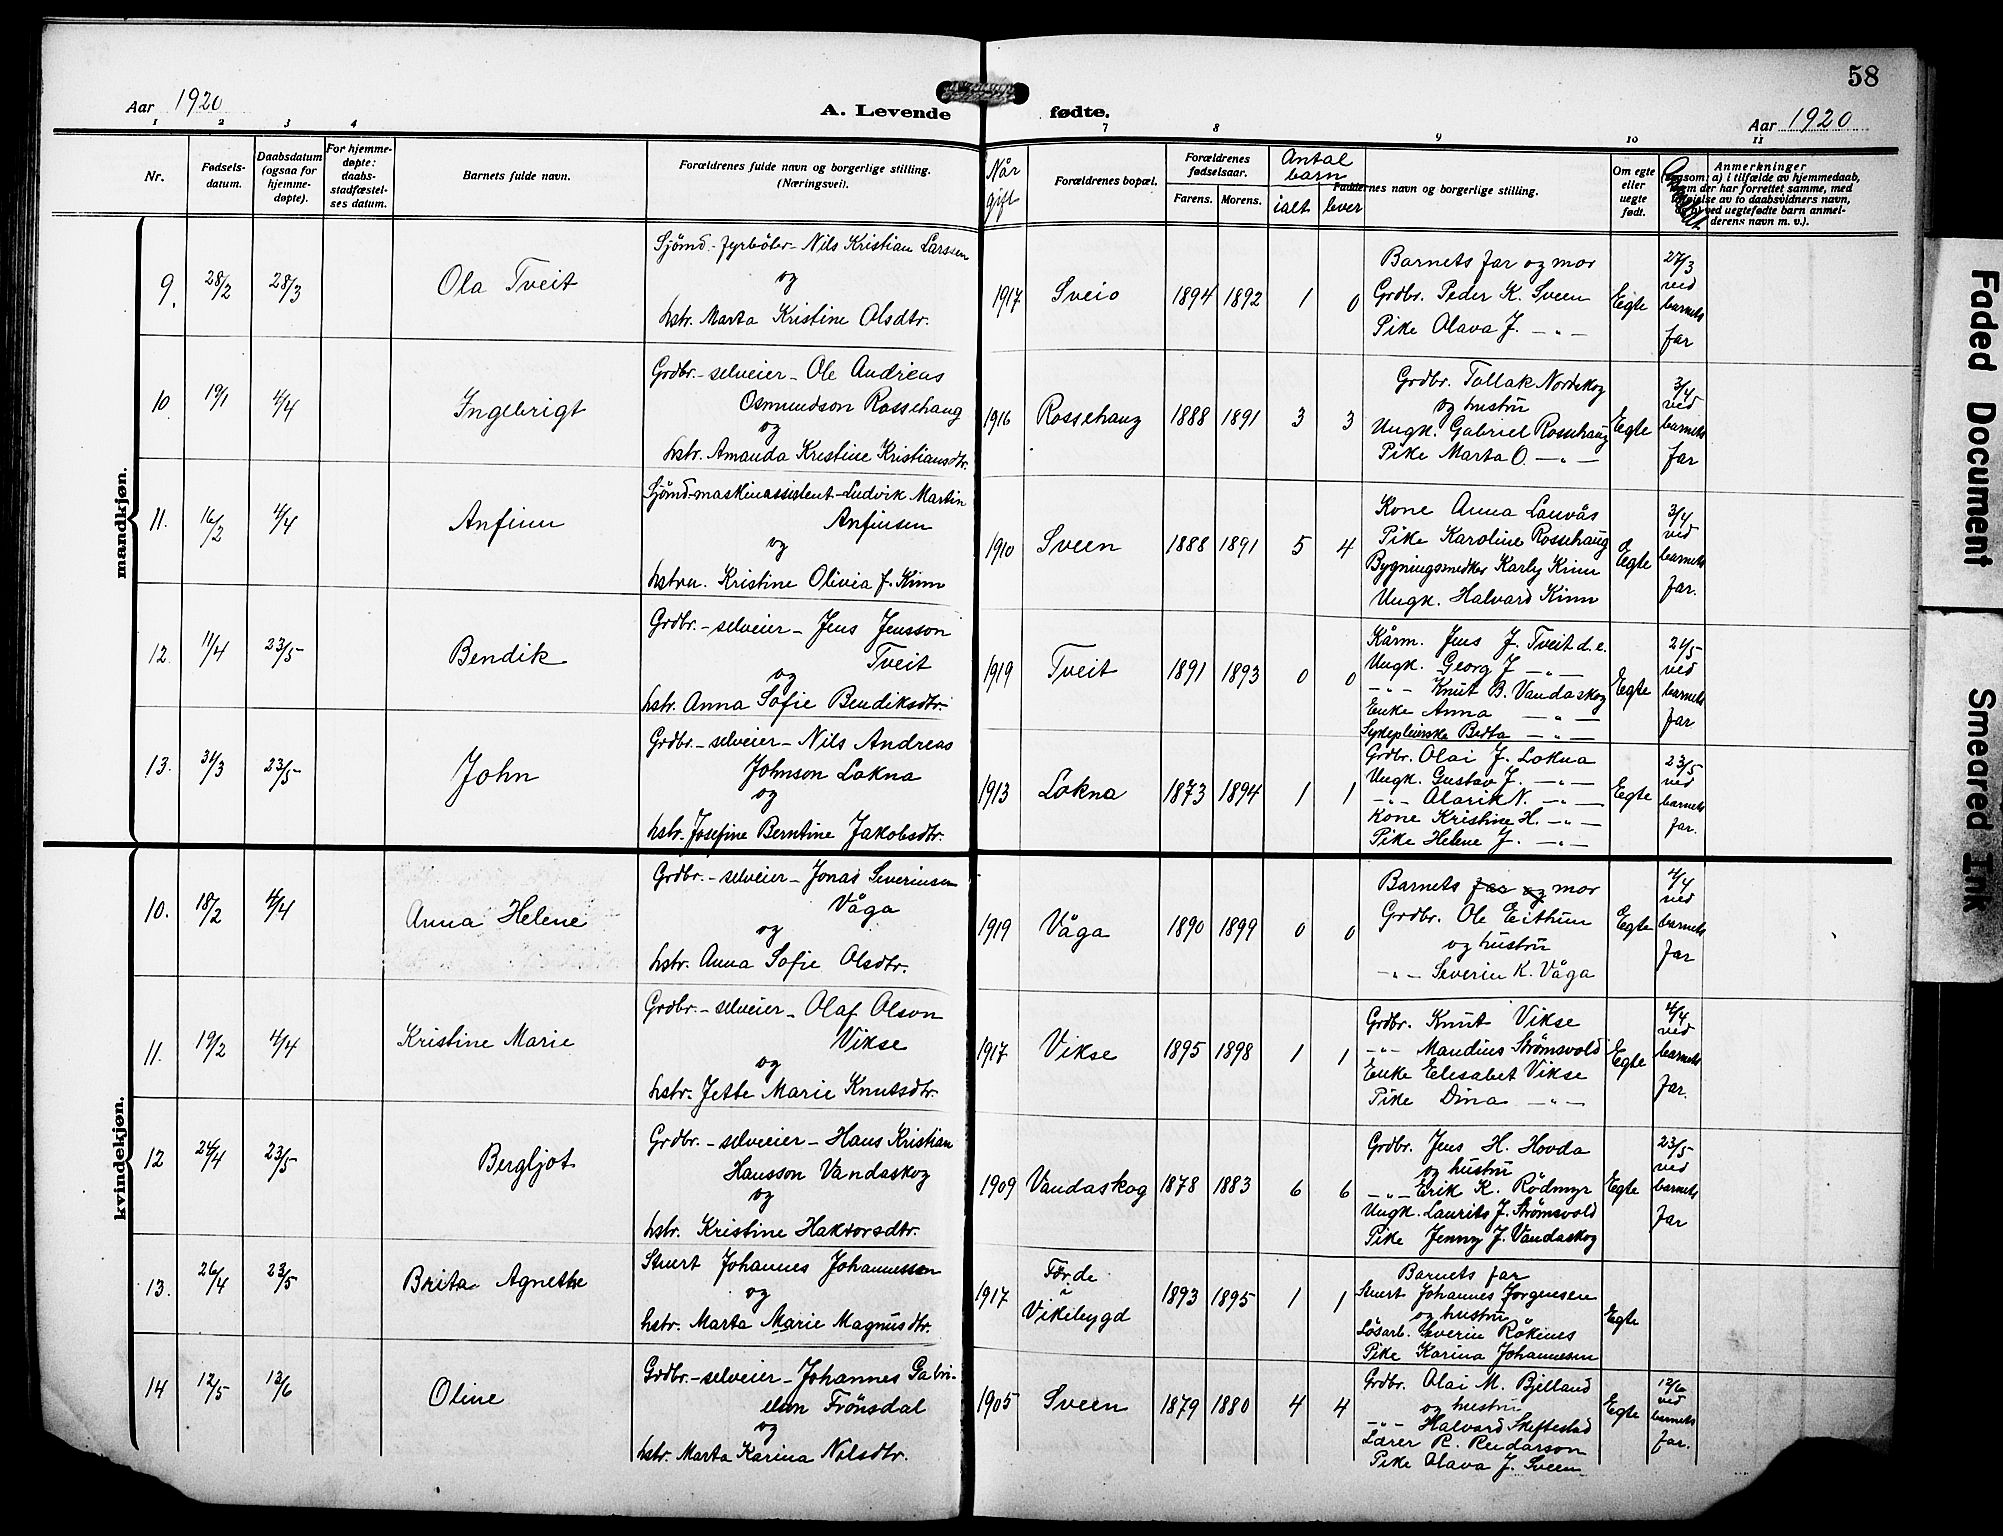 58
Aar 1920
A. Levende fødte.
Aar 1920
1 2 3 4 7 8 9 10 11
Nr.
Fødsels-
datum.
Daabsdatum
(ogsaa for
hjemme-
døpte).
For hjemme-
døpte:
daabs-
stadfæstel-
ses datum.
Barnets fulde navn.
Forældrenes fulde navn og borgerlige stilling.
(Næringsvei).
Når
gift
Forældrenes bopæl.
Forældrenes
fødselsaar.
Farens. Morens.
Antal
barn
ialt lever
Faddernes navn og borgerlige stilling.
Om egte
eller
uegte
født.
Anmerkninger
mandkjøn.
9. 28/2 28/3 Ola Tveit
Sjømd - fyrböter - Nils Kristian Larssen
og
hstr. Marta Kristine Olsdtr.
1917 Sveio 1894 1892 1 0
Barnets far og mor
Grdbr. Peder K. Sveen
Pike Olava J. — " —
Egte
27/3
ved
barnets
far
10 19/1 4/4 Ingebrigt
Grdbr. - selveier - Ole Andreas
Osmundson Rossehaug
og
hstr. Amanda Kristine Kristiansdtr.
1916 Rossehaug 1888 1891 3 3
Grdbr. Tollak Nordskog
og hustru
Ungk. Gabriel Rossehaug
Pike Marta O. — " —
Egte
3/4
ved
barnets
far
11. 16/2 4/4 Anfinn
Sjømd-maskinassistent-Ludvik Martin
Anfinsen
og
hstru. Kristine Olivia f. Kinn
1910 Sveen 1888 1891 5 4
Kone Anna Lauvås
Pike Karoline Rossehaug
Bygningsmedker Karly Kinn
Ungk. Halvard Kinn
Egte
3/4
ved
barnets
far.
12. 11/4 23/5 Bendik
Grdbr. - selveier - Jens Jensson
Tveit
og
hstr. Anna Sofie Bendiksdtr.
1919 Tveit 1891 1893 0 0
Kårm. Jens J. Tveit d.e.
Ungk. Georg J. — " —
— " — Knut B. Vandaskog
Enke Anna — " —
Sykepleierske Berta — " —
Egte
21/5
ved
barnets
far
13. 31/3 23/5 John
Grdbr. - selveier - Nils Andreas
Johnson Lokna
og
hstr. Josefine Berntine Jakobsdtr.
1913 Lokna 1873 1894 1 1
Grdbr. Olai J. Lokna
Ungk. Gustav J. — " —
— " — Alarik N. — " —
Kone Kristine H. — " —
Pike Helene J. — " —
Egte
23/5
ved
barnets
far.
kvindekjøn.
10. 18/2 4/4 Anna Helene
Grdbr. - selveier - Jonas Severinsen
Våga
og
hstr. Anna Sofie Olsdtr.
1919 Våga 1890 1899 0 0
Barnets far og mor
Grdbr. Ole Eithun
og hustru
— " — Severin K. Våga
Egte
4/4
ved
barnets
far
11. 19/2 4/4 Kristine Marie
Grdbr. - selveier - Olaf Olson
Vikse
og
hstr. Jette Marie Knutsdtr.
1917 Vikse 1895 1898 1 1
Grdbr. Knut Vikse
— " — Mandius Strømsvold
Enke Elesabet Vikse
Pike Dina — " —
Egte
4/4
ved
barnets
far.
12 24/4 23/5 Bergljot
Grdbr. - selveier - Hans Kristian
Hansson Vandaskog
og
hstr. Kristine Haktorsdtr.
1909 Vandaskog 1878 1883 6 6
Grdbr. Jens H. Hovda
og hustru
— " — Erik K. Rödmyr
Ungk. Laurits J. Strømsvold
Pike Jenny J. Vandaskog
Egte
23/5
ved
barnets
far
13. 26/4 23/5 Brita Agnethe
Stuert Johannes Johannessen
og
hstr. Marta Marie Magnusdtr.
1917 Førde
i
Vikebygd 1893 1895 1 1
Barnets far
Stuert Johannes Jørgensen
og hustru
Lösarb. Severin Rökines
Pike Karina Johannesen
Egte
14 12/5 13/6 Oline
Grdbr. - selveier - Johannes Gabri-
elsen Frönsdal
og
hstr. Marta Karina Nilsdtr.
1905 Sveen 1879 1880 4 4
Grdbr. Olai M. Bjelland
og hustru
— " — Halvard Skiftestad
Lærer R. Reidarson
Pike Olava J. Sveen
Egte
12/6
ved
barnets
far.
Faded Document
Smeared Ink